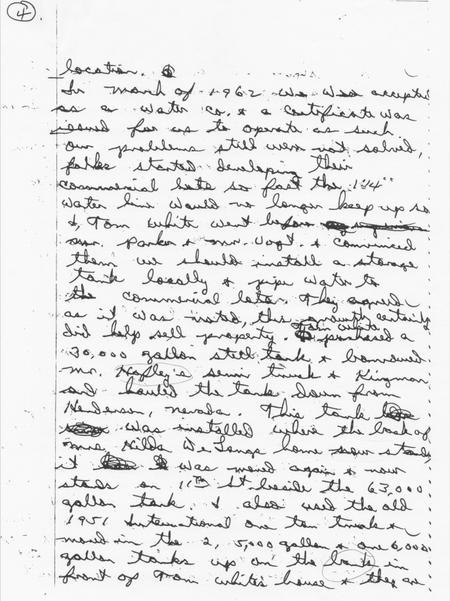 4
location.
In march of 1962 we was accepted
as a water co. & a certificate was
issued for us to operate as such
our problems still were not solved,
folks started developing their
commercial lots so fast the 1 1/4"
water line would no longer keep up so
I, Tom White went before
mr. Parker & mr. Vogt. & convinced
them we should install a storage
tank locally & pipe water to
the commercial lots. They agreed
as it was noted, this growth certainly
did help sell property. Tom White purchased a
30,000 gallon steel tank & borrowed
mr. semi truck & Kingman
and hauled the tank down from
Henderson, nevada. This tank
was installed where the back of
mrs Hilda DeLonge home now stands,
it was moved again & now
stands on 11th St beside the 63,000
gallon tank. I also used the old
1951 International one ton truck &
moved in the 2, 5,000 gallon & one 6,000
gallon tanks up on the bank in
front of Tom White's house & they are